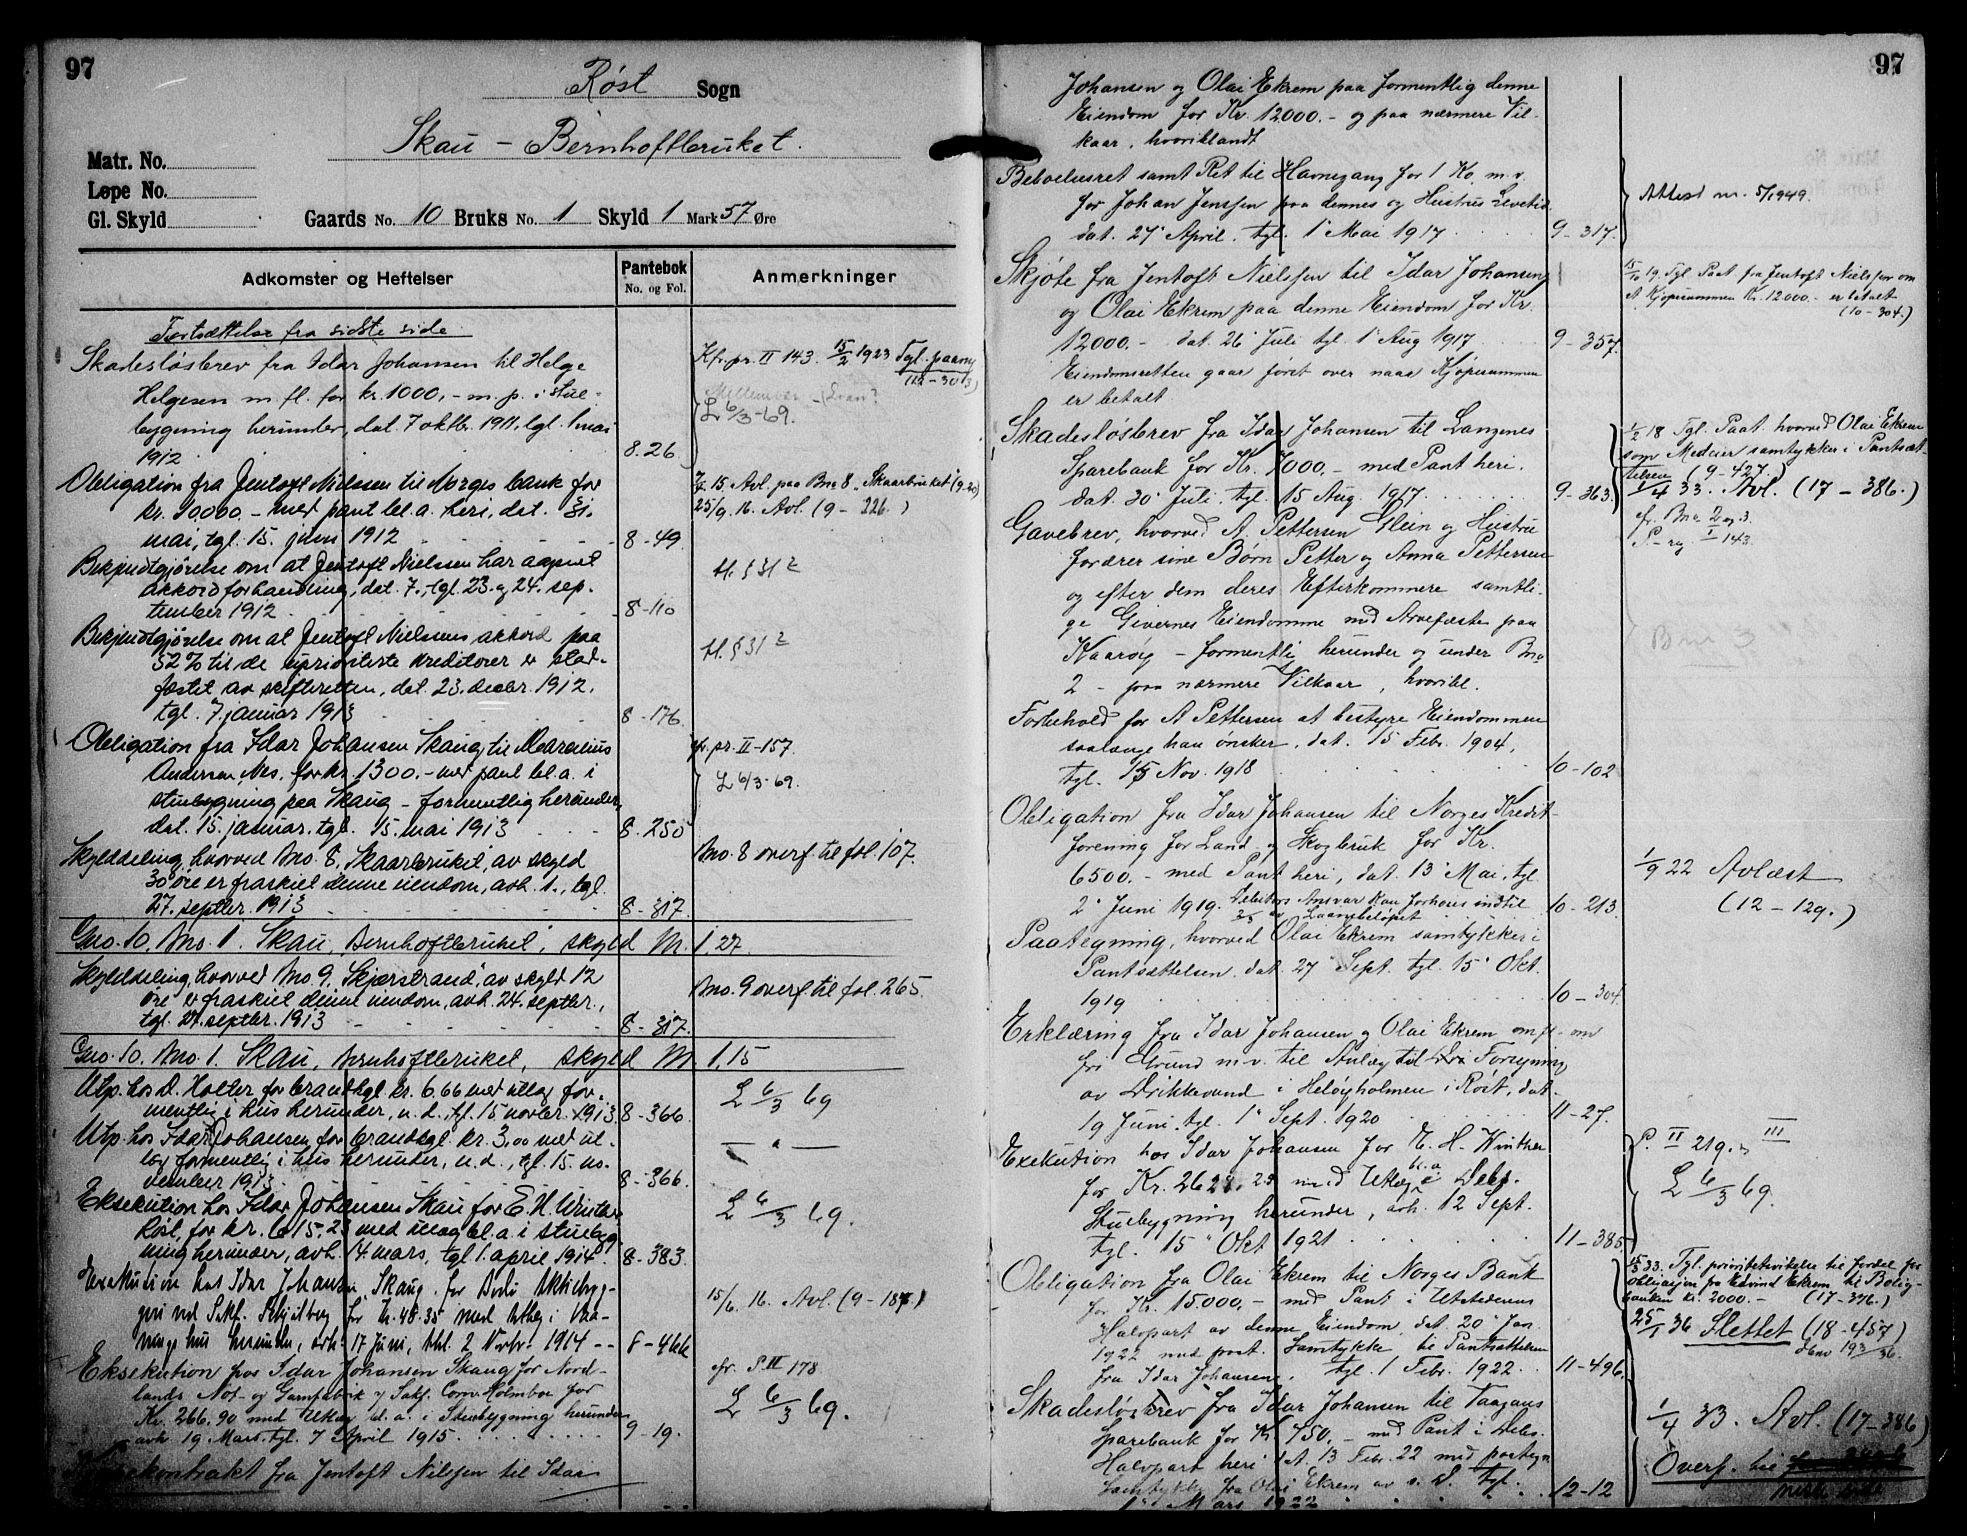 97
Røst Sogn
Skau - Bernhoftbruket.
Matr. No.
Løpe No.
Gl. Skyld
Gaards No. 10 Bruks No. 1 Skyld 1 Mark 57 Øre
Adkomster og Heftelser
Pantebok
No. og Fol.
Anmerkninger
Fortsættelse fra sidste side
Skadesløsbrev fra Idar Johansen til Helge
Helgesen m fl. for kr. 1000,- m. p. i Stue-
bygning herunder, dat. 7 oktbr. 1911, tgl. 1 mai
1912 8.26
Kfr. pr. II 143. 15/2 1923 Tgl. paateg
L 6/3-69.
Obligation fra Jentoft Nielsen til Norges bank for
kr. 10000,- med pant bl.a. heri, dat. 31.
mai, tgl. 15. juni 1912 8-49
15. Avl. paa Bno 8 "Skaarbruket" (9.20)
25/9. 16. Avl. (9- 226.)
Bekjendtgjørelse om at Jentoft Nielsen har aapnet
akkordforhandling, dat. 7., tgl. 23. og 24. sep-
tember 1912 8-110
tl. § 31 2
Bekjendtgjørelse om at Jentoft Nielsens akkord paa
52% til de uprioriterte kreditorer er stad-
fæstet av skifteretten, dat. 23. decbr. 1912,
tgl. 7. januar 1913 8-176
tl. § 31 2
Obligation fra Idar Johansen Skaug til Marcelius
Andersen Nes, for kr. 1300,- med pant bl.a. i
stuebygning paa Skaug - formentlig herunder,
dat. 15. januar, tgl. 15. mai 1913 8-250
cfr. pr. II-157.
L 6/3-69.
Skylddeling, hvorved bno. 8, "Skaarbruket", av skyld
30 øre er fraskilt denne eiendom, avh. 1., tgl.
27. septbr. 1913 8-317.
Bno. 8 overf. til fol. 107.
Gno. 10, bno. 1. Skau, "Bernhoftbruket", skyld M. 1,27
Skylddeling, hvorved bno 9, "Skjærstrand", av skyld 12
øre er fraskilt denne eiendom, avh. 24. septbr.,
tgl. 27. septbr. 1913 8-317.
Bno. 9 overf. til fol. 265.
Gno. 10, bno. 1. Skau, Bernhoftbruket, skyld M. 1,15
Utp. hos D. Holter for brandkgl. kr. 6.66 med utlæg for-
mentlig i hus herunder, u. d., tgl. 15 novbr. 1913 8-366.
L 6/3 69
Utp. hos Idar Johansen for brandkgl. kr. 3,00 med ut-
læg formentlig i hus herunder, u. d., tgl. 15. no-
vember 1913 8-366.
— " —
Eksekution hos Idar Johansen Skau for E. H. Winther
Røst, for kr. 615,23 med utlæg bl. a. i stuebyg-
ning herunder, avh. 14. mars, tgl. 1. april 1914 8-383
L 6/3 69.
Exekution hos Idar Johansen Skaug for Bodø Aktiebryg-
geri ved Sakf. Schjelberg for kr. 48.35 med Utlæg i Vaa-
nings hus herunder, avh. 17 Juni, tgl. 2 Novbr. 1914 -- 8-466
15/6. 16. Avl. (9-187)
Eksekution hos Idar Johansen Skaug for Nord-
lands Not- og Garnfabrik v/ Sakf. Corn Holmboe for
Kr. 266.90 med Utlæg bl. a. i Stuebygning herunder
avh. 19. Mars, tgl. 7 April 1915 9-19.
cfr. P. III 178
L 6/3 69.
Kjøpekontrakt fra Jentoft Nilsen til Idar
97
Johansen og Olai Ekrem paa formentlig denne
Eiendom for Kr. 12000.- og paa nærmere Vil-
kaar, hvoriblandt
Beboelsesret samt Ret til Havnegang for 1 Ko m. v.
for Johan Jenssen paa dennes og Hustrus Levetid
dat. 27. April, tgl. 1. Mai 1917 9-317.
Attest nr. 5/1949.
Skjøte fra Jentoft Nielssen til Idar Johansen
og Olai Ekrem paa denne Eiendom for Kr.
12000.- dat. 26 Juli tgl. 1. Aug 1917 9-357.
Eiendomsretten gaar først over naar Kjøpesummen
er betalt
15/10 19. Tgl. Paat. fra Jentoft Nielsen om
at Kjøpesummen Kr. 12000.- er betalt
(10-304.)
Skadesløsbrev fra Idar Johansen til Langenes
Sparebank for Kr. 7000.- med Pant heri.
dat. 30. Juli, tgl. 15 Aug. 1917 9-363.
1/2 18 Tgl. Paat. hvorved Olai Ekrem
som Medeier samtykker i Pantsæt-
telsen (9-427.)
1/4 33. Avl. (17-386.)
Gavebrev, hvorved A. Pettersen Glein og Hustru
forærer sine Børn Petter og Anna Pettersen
og efter dem deres Efterkommere samtli-
ge Givernes Eiendomme med Arvefæste paa
Kaarøy - formentlig herunder og under Bno
2 - paa nærmere Vilkaar, hvoribl.
cfr. Bno. 2 og 3.
P.- rg. I 143.
Bno 3
Forbehold for A Pettersen at bestyre Eiendommen
saalænge han ønsker, dat. 15 Febr. 1904,
tgl. 15 Nov. 1918 10-102
Obligation fra Idar Johansen til Norges Kredit-
forening for Land- og Skogbruk for Kr.
6500.- med Pant heri, dat. 13. Mai, tgl.
2. Juni 1919. Debitors Ansvar kan forhøies indtil
2/5 av Laanebeløpet 10-213.
1/9 22 Avlæst
(12-129.)
Paategning, hvorved Olai Ekrem samtykker i
Pantsættelsen, dat. 27. Sept. tgl. 15. Okt.
1919 10-304.
Erklæring fra Idar Johansen og Olai Ekrem om
fri Grund m.v. til Anlæg til Forsyning
av Drikkevand i Heløyholmen i Røst, dat.
19 Juni, tgl. 1. Sept. 1920 11-27.
Exekution hos Idar Johansen for E. H. Winther
for Kr. 2628.23 med Utlæg bl. a. i Debs.
Stuebygning herunder, avh. 12 Sept.
tgl. 15. Okt 1921 11-385
P. II 219. og III
L 6/3 69.
Obligation fra Olai Ekrem til Norges Bank
for Kr. 15.000.- med Pant i Utstederens
Halvpart av denne Eiendom, dat. 20. Jan.
1922 med paat. Samtykke til Pantsættelsen
fra Idar Johansen, tgl. 1 Febr. 1922. 11-496.
15/3 33. Tgl. prioritetsvikelse til fordel for
obligasjon fra Edvind Ekrem til Bolig-
banken kr. 2000.- (17-376.)
25/1 36 Slettet (18-457)
Skadesløsbrev fra Idar Johansen til Vaagans
Sparebank for Kr. 750.- med Pant i Debs.
Halvpart heri dat. 13 Febr. 22 med paategn
Samtykke fra Olai Ekrem av s. D. tgl.
1. Mars 1922 12-12
1/4 33. Avl. (17-386)
Overf. til
neste side